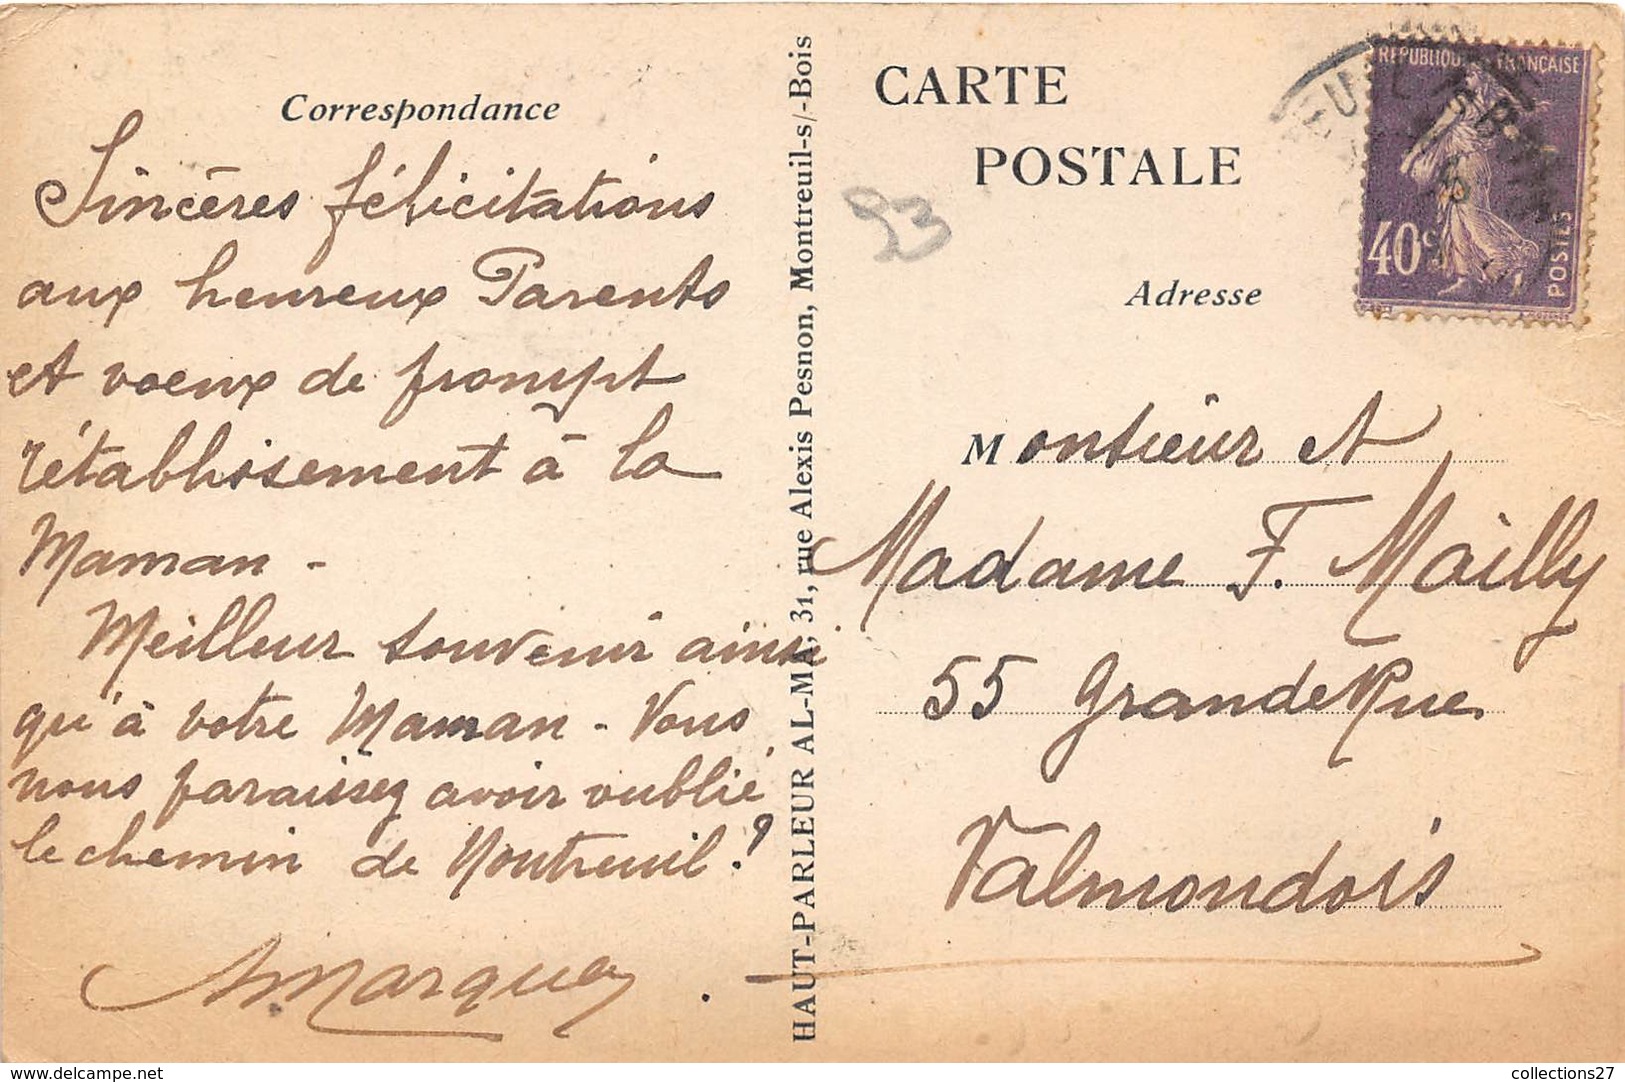 Correspondance
Sincères félicitations
aux heureux Parents
et voeux de prompt
rétablissement à la
Maman -
Meilleur souvenir ainsi
qu'à votre Maman - Vous
nous paraissez avoir oublié
le chemin de Montreuil ?
HAUT-PARLEUR AL-MA, 31, rue Alexis Pesnon, Montreuil-s/-Bois
CARTE
POSTALE
93
Adresse
REPUBLIQUE FRANÇAISE
40c
POSTES
Monsieur et
Madame F. Mailly
55 Grande Rue
Valmondois
delcampe.net
collections27